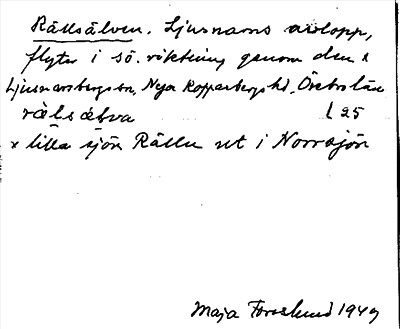 Rällsälven. Ljusnarns avlopp,
flyter i sö. riktning genom den x
Ljusnarsbergs sn, Nya Kopparbergs hd. Örebro län
rälsälva L 25
x lilla sjön Rällen ut i Norrsjön
Maja Forslund 1949